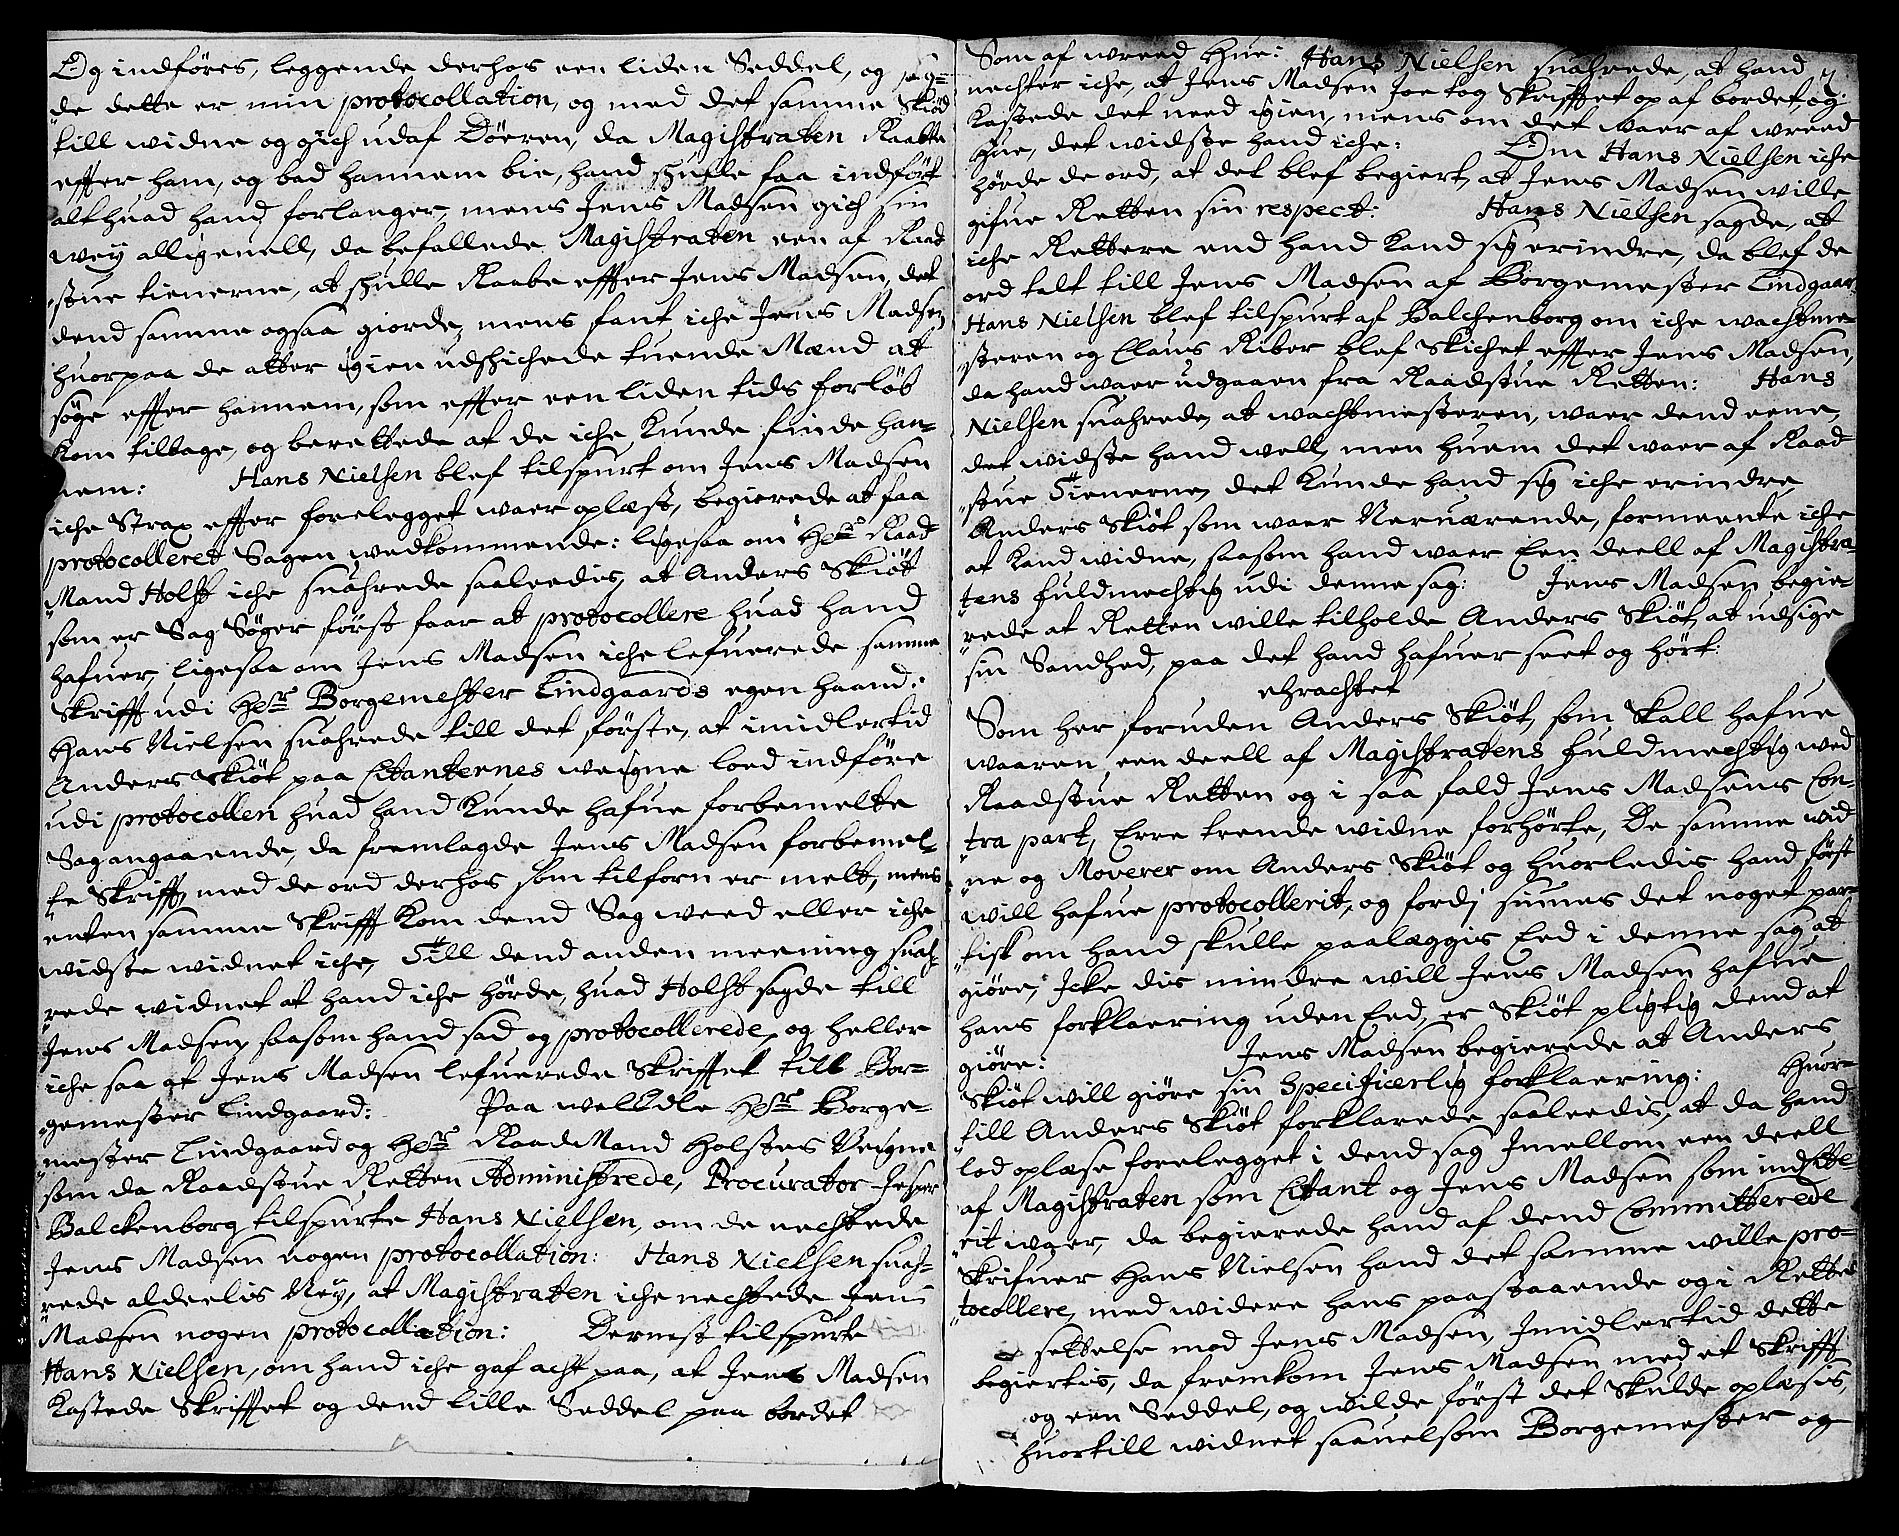 Og indföres, leggende derhos een liden Seddel, og sag-
de dette er min protocollation, og med det samme Skiød
till widne og gich udaf Döeren, da Magistraten Raabte
effter ham, og bad hannem bie, hand schulle faa indfört
alt huad hand forlanger, mens Jens Madsen gich sin
wey alligeuell, da befallede Magistraten een af Raad
stue tienerne, at schulle Raabe effter Jens Madsen, det
dend samme ogsaa giorde, mens fant iche Jens Madsen
huorpaa de atter igien udschichede tuende Mænd at
söge effter hannem, som effter een liden tids forlöb
Kom tilbage, og berettede at de iche Kunde finde han-
nem: Hans Nielsen blef tilspurt om Jens Madsen
iche Strax effter forelegget waar oplæst, begierede at faa
protocolleret Sagen wedkommende: ligesaa om Her Raad
Mand Holst iche suahrede saaledis, at Anders Skiöt
som er Sag Söger först faar at protocollere huad hand
hafuer, ligesaa om Jens Madsen iche lefuerede samme
Skrifft udi Her Borgemester Lindgaards egen haand:
Hans Nielsen suahrede till det förste, at imidlertid
Anders Skiöt paa Citanternes weigne loed indföre
udi protocollen huad hand Kunde hafue forbemelte
Sag angaaende, da fremlagde Jens Madsen forbemel-
te Skrifft, med de ord derhos som tilforn er melt, mens
enten samme Skrifft Kom dend Sag weed eller iche
widste widnet iche, Till dend anden meening suah-
rede widnet at hand iche hörde, huad Holst sagde till
Jens Madsen, saasom hand sad og protocollerede, og heller
iche saa at Jens Madsen lefuerede Skrifftet till Bor-
gemester Lindgaard: Paa welEdle Her Borge-
mester Lindgaard og Her RaadMand Holstes Veigne
som da Raadstue Retten Administrede, Procurator Jesper
Balckenborg tilspurte Hans Nielsen, om de nechtede
Jens Madsen nogen protocollation: Hans Nielsen suah-
rede aldeelis Ney, at Magistraten iche nechtede Jens
Madsen nogen protocollation: Dernest tilspurte
Hans Nielsen, om hand iche gaf acht paa, at Jens Madsen
Kastede Skrifftet og dend lille Seddel paa bordet
Som af wreed Hue: Hans Nielsen suahrede, at hand
nechter iche, at Jens Madsen Joe tog Skrifftet op af bordet, og
Kastede det need igien, mens om det waar af wreed
Hue, det widste hand iche: Om Hans Nielsen iche
hörde de ord, at det blef begiert, at Jens Madsen wille
gifue Retten sin respect: Hans Nielsen sagde, at
iche Rettere end hand Kand sig erindre, da blef de
ord talt till Jens Madsen af Borgemester Lindgaar
Hans Nielsen blef tilspurt af Balchenborg om iche wachtme-
steren og Claus Riber blef skichet effter Jens Madsen,
da hand waar udgaaen fra Raadstue Retten: Hans
Nielsen suahrede, at wachtmesteren, waar dend eene,
det widste hand well, men huem det waar af Raad
stue Tienerne, det Kunde hand sig iche erindre,
Anders Skiöt som waar Neruærende, formeente iche
at Kand widne, saasom hand waar Een deell af Magistra-
tens fuldmechtig udi denne sag: Jens Madsen begie-
rede at Retten wille tilholde Anders Skiöt, at udsige
sin Sandhed, paa det hand hafuer seet og hört:
Som her foruden Anders Skiöt, som Skall hafue
waaren een deell af Magistratens fuldmechtig wed
Raadstue Retten og i saa fald Jens Madsens Con-
tra part, Erre trende widne forhörte, De samme wid
ne og Moverer om Anders Skiöt og huorledis hand först
will hafue protocollerit, og fordj siunes det noget par-
tisk om hand skulle paaleggis Eed i denne sag at
giöre, Jcke dis mindre will Jens Madsen hafue
hans forklaering uden Eed, er Skiöt pligtig dend at
giöre: Jens Madsen begierede at Anders
Skiöt will giöre sin Specificerlig forklaering: Huor-
till Anders Skiöt forklarede saaledis, at da hand
lod oplæse forelegget i dend sag Jmellom een deell
af Magistraten som Citant og Jens Madsen som indsite-
rit waar, da begierede hand af dend Committerede
Skrifuer Hans Nielsen hand det samme wille pro-
tocollere, med widere hans paastaaende og i Rette
settelse mod Jens Madsen, Jmidlertid dette
begiertis, da fremkom Jens Madsen med et Skrifft
og een Seddel, og wilde först det Skulde oplæsis,
huortill widnet saauelsom Borgemester og